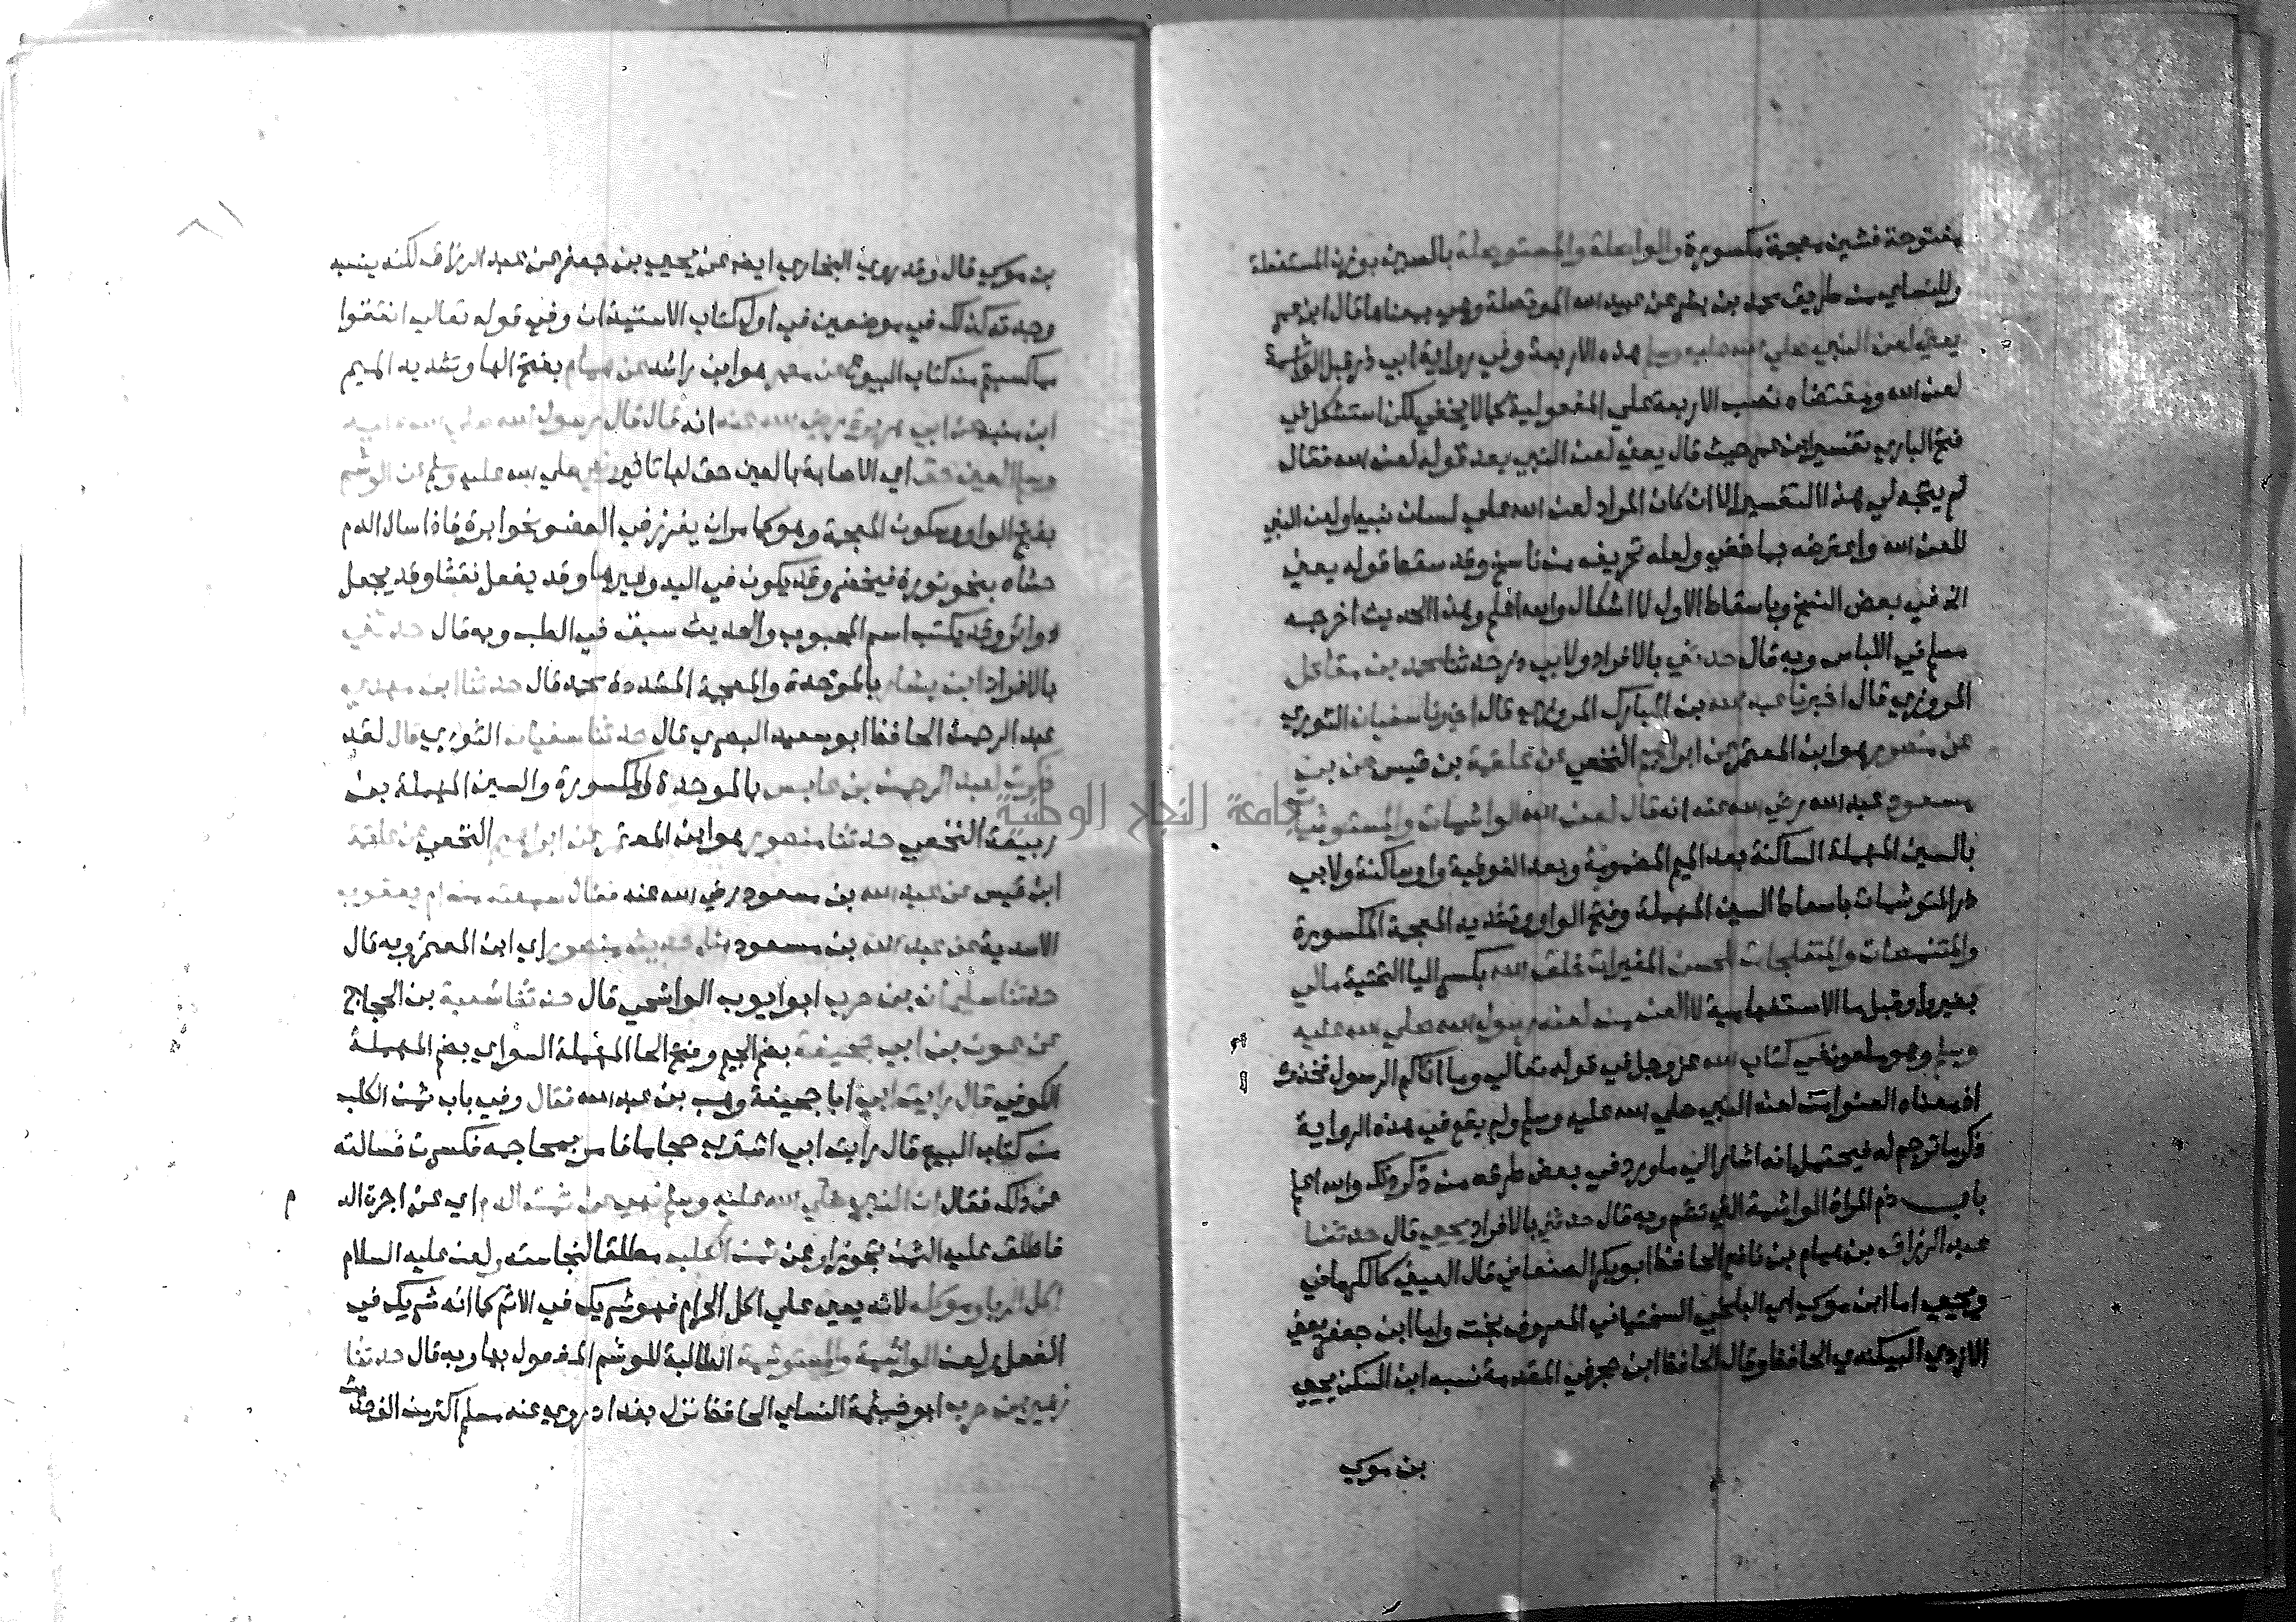 مفتوحة فشين معجمة مكسورة والواصلة والمستوصلة بالسين بوزن المستفعلة
وللنساي من طريق محمد بن بشر عن عبيد الله الموتصلة وهي بمعناها قال ابن عمر
يعني لعن النبي صلي الله عليه وسلم هذه الاربعة وفي رواية ابي ذر قبل الواشمة
لعن الله ومقتضاه نصب الاربعة علي المفعولية كما لا يخفي لكن استشكل في
فتح الباري تفسير ابن عمر حيث قال يعني لعن النبي بعد قوله لعن الله فقال
لم يتجه لي هذا التفسير الا ان كان المراد لعن الله علي لسان نبيه او لعن النبي
للعن الله واعترضه بما خفي ولعله تحريف من ناسخ وقد سقط قوله يعني
الخ في بعض النسخ وباسقاط الاول لا اشكال والله اعلم وهذا الحديث اخرجه
مسلم في اللباس وبه قال حدثني بالافراد ولابي ذر حدثنا محمد بن مقاتل
المروزي قال اخبرنا عبد الله بن المبارك المروزي قال اخبرنا سفيان الثوري
عن منصور هو ابن المعتمر عن ابراهيم النخعي عن علقمة بن قيس عن بن
مسعود عبد الله رضي الله عنه انه قال لعن الله الواشمات والمستوشمات
بالسين المهملة الساكنة بعد الميم المضمومة وبعد الفوقية واو ساكنة ولابي
ذر المتوشمات باسقاط السين المهملة وفتح الواو وتشديد المعجمة المكسورة
والمتنمصات والمتفلجات للحسن المغيرات خلق الله بكسر اليا التحتية مالي
بغير واو قبل ما الاستفهامية لا العن من لعنه رسول الله صلي الله عليه
وسلم وهو ملعون في كتاب الله عز وجل في قوله تعالي وما اتاكم الرسول فخذوه
اذ معناه العنوا من لعنه النبي صلي الله عليه وسلم ولم يقع في هذه الرواية
ذكر ما ترجم له فيحتمل انه اشار الي ما ورد في بعض طرقه من ذكر ذلك والله اعلم
باب ذم المراة الواشمة التي تشم وبه قال حدثني بالافراد يحيي قال حدثنا
عبد الرزاق بن همام بن نافع الحافظ ابو بكر الصنعاني قال العيني كالكرماني
ويحيي اما ابن موسي اي البلخي السختياني المعروف بخت واما ابن جعفر يعني
الازدي البيكندي الحافظ وقال الحافظ ابن حجر في المقدمة نسبه ابن السكن يحيي
بن موسي
بن موسي قال وقد روي البخاري ايضا عن يحيي بن جعفر عن عبد الرزاق لكنه ينسبه
وجدته كذلك في موضعين في اول كتاب الاستيذان وفي قوله تعالي انفقوا
ما كسبتم من كتاب البيوع عن معمر هو ابن راشد عن همام بفتح الها وتشديد الميم
ابن منبه عن ابي هريرة رضي الله عنه انه قال قال رسول الله صلي الله عليه
وسلم العين حق اي الاصابة بالعين حق لها تاثير ونهي صلي الله عليه وسلم عن الوشم
بفتح الواو وسكون المعجمة وهو كما مر ان يغرز في العضو نحو ابرة فاذا سال الدم
حشاه بنحو نورة فيخضر وقد يكون في اليد وغيرها وقد يفعل نقشا وقد يجعل
دواير وقد يكتب اسم المحبوب والحديث سبق في الطب وبه قال حدثني
بالافراد ابن بشار بالموحدة والمعجمة المشددة محمد قال حدثنا ابن مهدي
عبد الرحمن الحافظ ابو سعيد البصري قال حدثنا سفيان الثوري قال لقد
ذكرت لعبد الرحمن بن عابس بالموحدة المكسورة والسين المهملة بن
ربيعة النخعي حديثا منصور هو ابن المعتمر عن ابراهيم النخعي عن علقمة
ابن قيس عن عبد الله بن مسعود رضي الله عنه فقال سمعته من ام يعقوب
الاسدية عن عبد الله بن مسعود مثل حديث منصور اي ابن المعتمر وبه قال
حدثنا سليمان بن حرب ابو ايوب الواشحي قال حدثنا شعبة بن الحجاج
عن عون بن ابي جحيفة بضم الجيم وفتح الحا المهملة السواي بضم المهملة
الكوفي قال رايت ابي ابا جحيفة وهب بن عبد الله فقال وفي باب ثمن الكلب
من كتاب البيع قال رايت ابي اشتري حجاما فامر بمحاجمه فكسرت فسالته
عن ذلك فقال ان النبي صلي الله عليه وسلم نهي عن ثمن الدم اي عن اجرة الد م
فاطلق عليه الثمن تجوزا وعن ثمن الكلب مطلقا لنجاسته ولعن عليه السلام
اكل الربا وموكله لانه يعين علي اكل الحرام فهو شريك في الاثم كما انه شريك في
الفعل ولعن الواشمة والمستوشمة الطالبة للوشم المفعول بها وبه قال حدثنا
زهير بن حرب ابو خيثمة النساي الحافظ نزل بغداد روي عنه مسلم اكثر من الف حديث
جامعة النجاح الوطنية